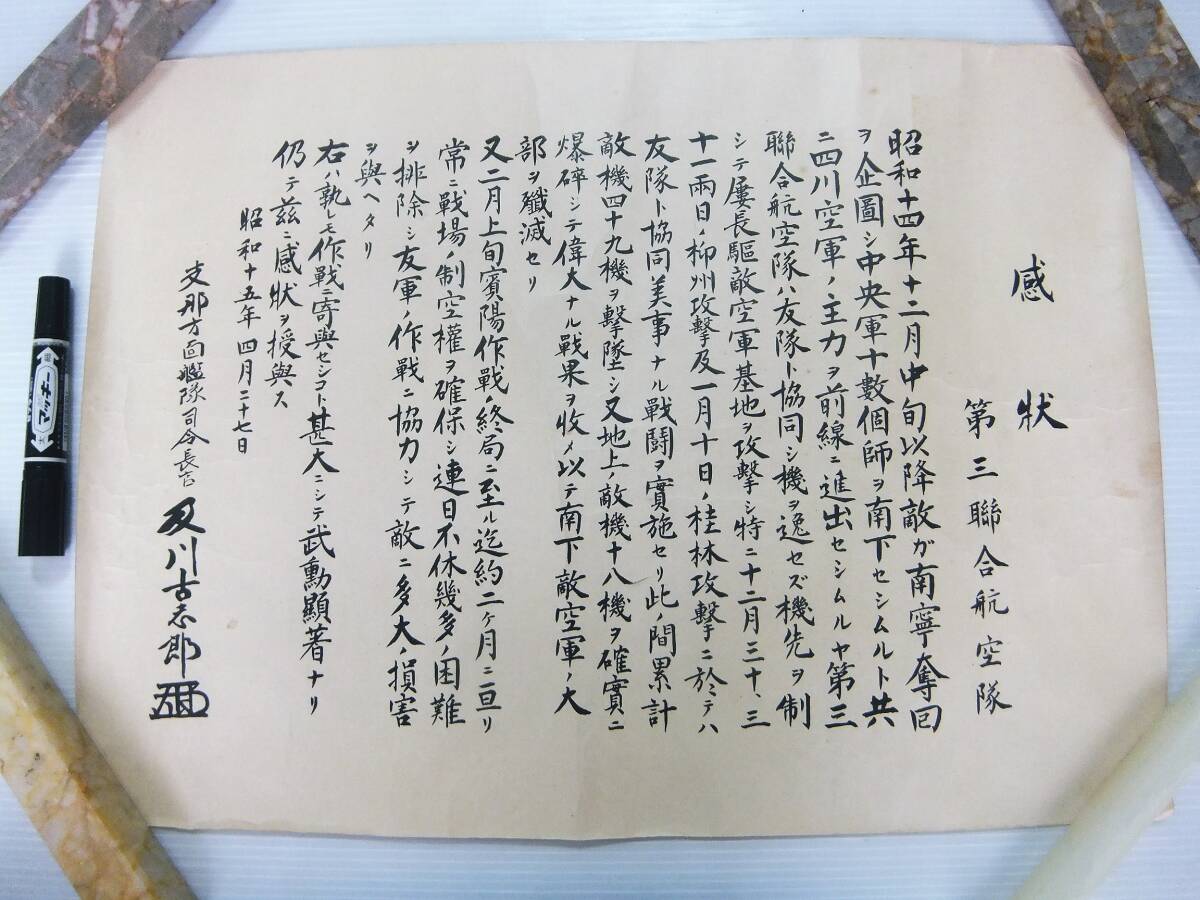 感状
第三聯合航空隊
昭和十四年十二月中旬以降敵ガ南寧奪回
ヲ企圖シ中央軍十數個師ヲ南下セシムルト共
ニ四川空軍ノ主力ヲ前線ニ進出セシムルヤ第三
聯合航空隊ハ友隊ト協同シ機ヲ逸セズ機先ヲ制
シテ屢長驅敵空軍基地ヲ攻擊シ特ニ十二月三十、三
十一兩日ノ柳州攻擊及一月十日ノ桂林攻擊ニ於テハ
友隊ト協同美事ナル戰鬪ヲ實施セリ此ノ間累計
敵機四十九機ヲ擊墜シ又地上ノ敵機十八機ヲ確實ニ
爆碎シテ偉大ナル戰果ヲ收メ以テ南下敵空軍ノ大
部ヲ殲滅セリ
又二月上旬賓陽作戰ノ終局ニ至ル迄約二ヶ月ニ亘リ
常ニ戰場ノ制空權ヲ確保シ連日不休幾多ノ困難
ヲ排除シ友軍ノ作戰ニ協力シテ敵ニ多大ノ損害
ヲ與ヘタリ
右ハ孰レモ作戰ニ寄與セシコト甚大ニシテ武勳顯著ナリ
仍テ茲ニ感狀ヲ授與ス
昭和十五年四月二十七日
支那方面艦隊司令長官 及川古志郎
マッキー